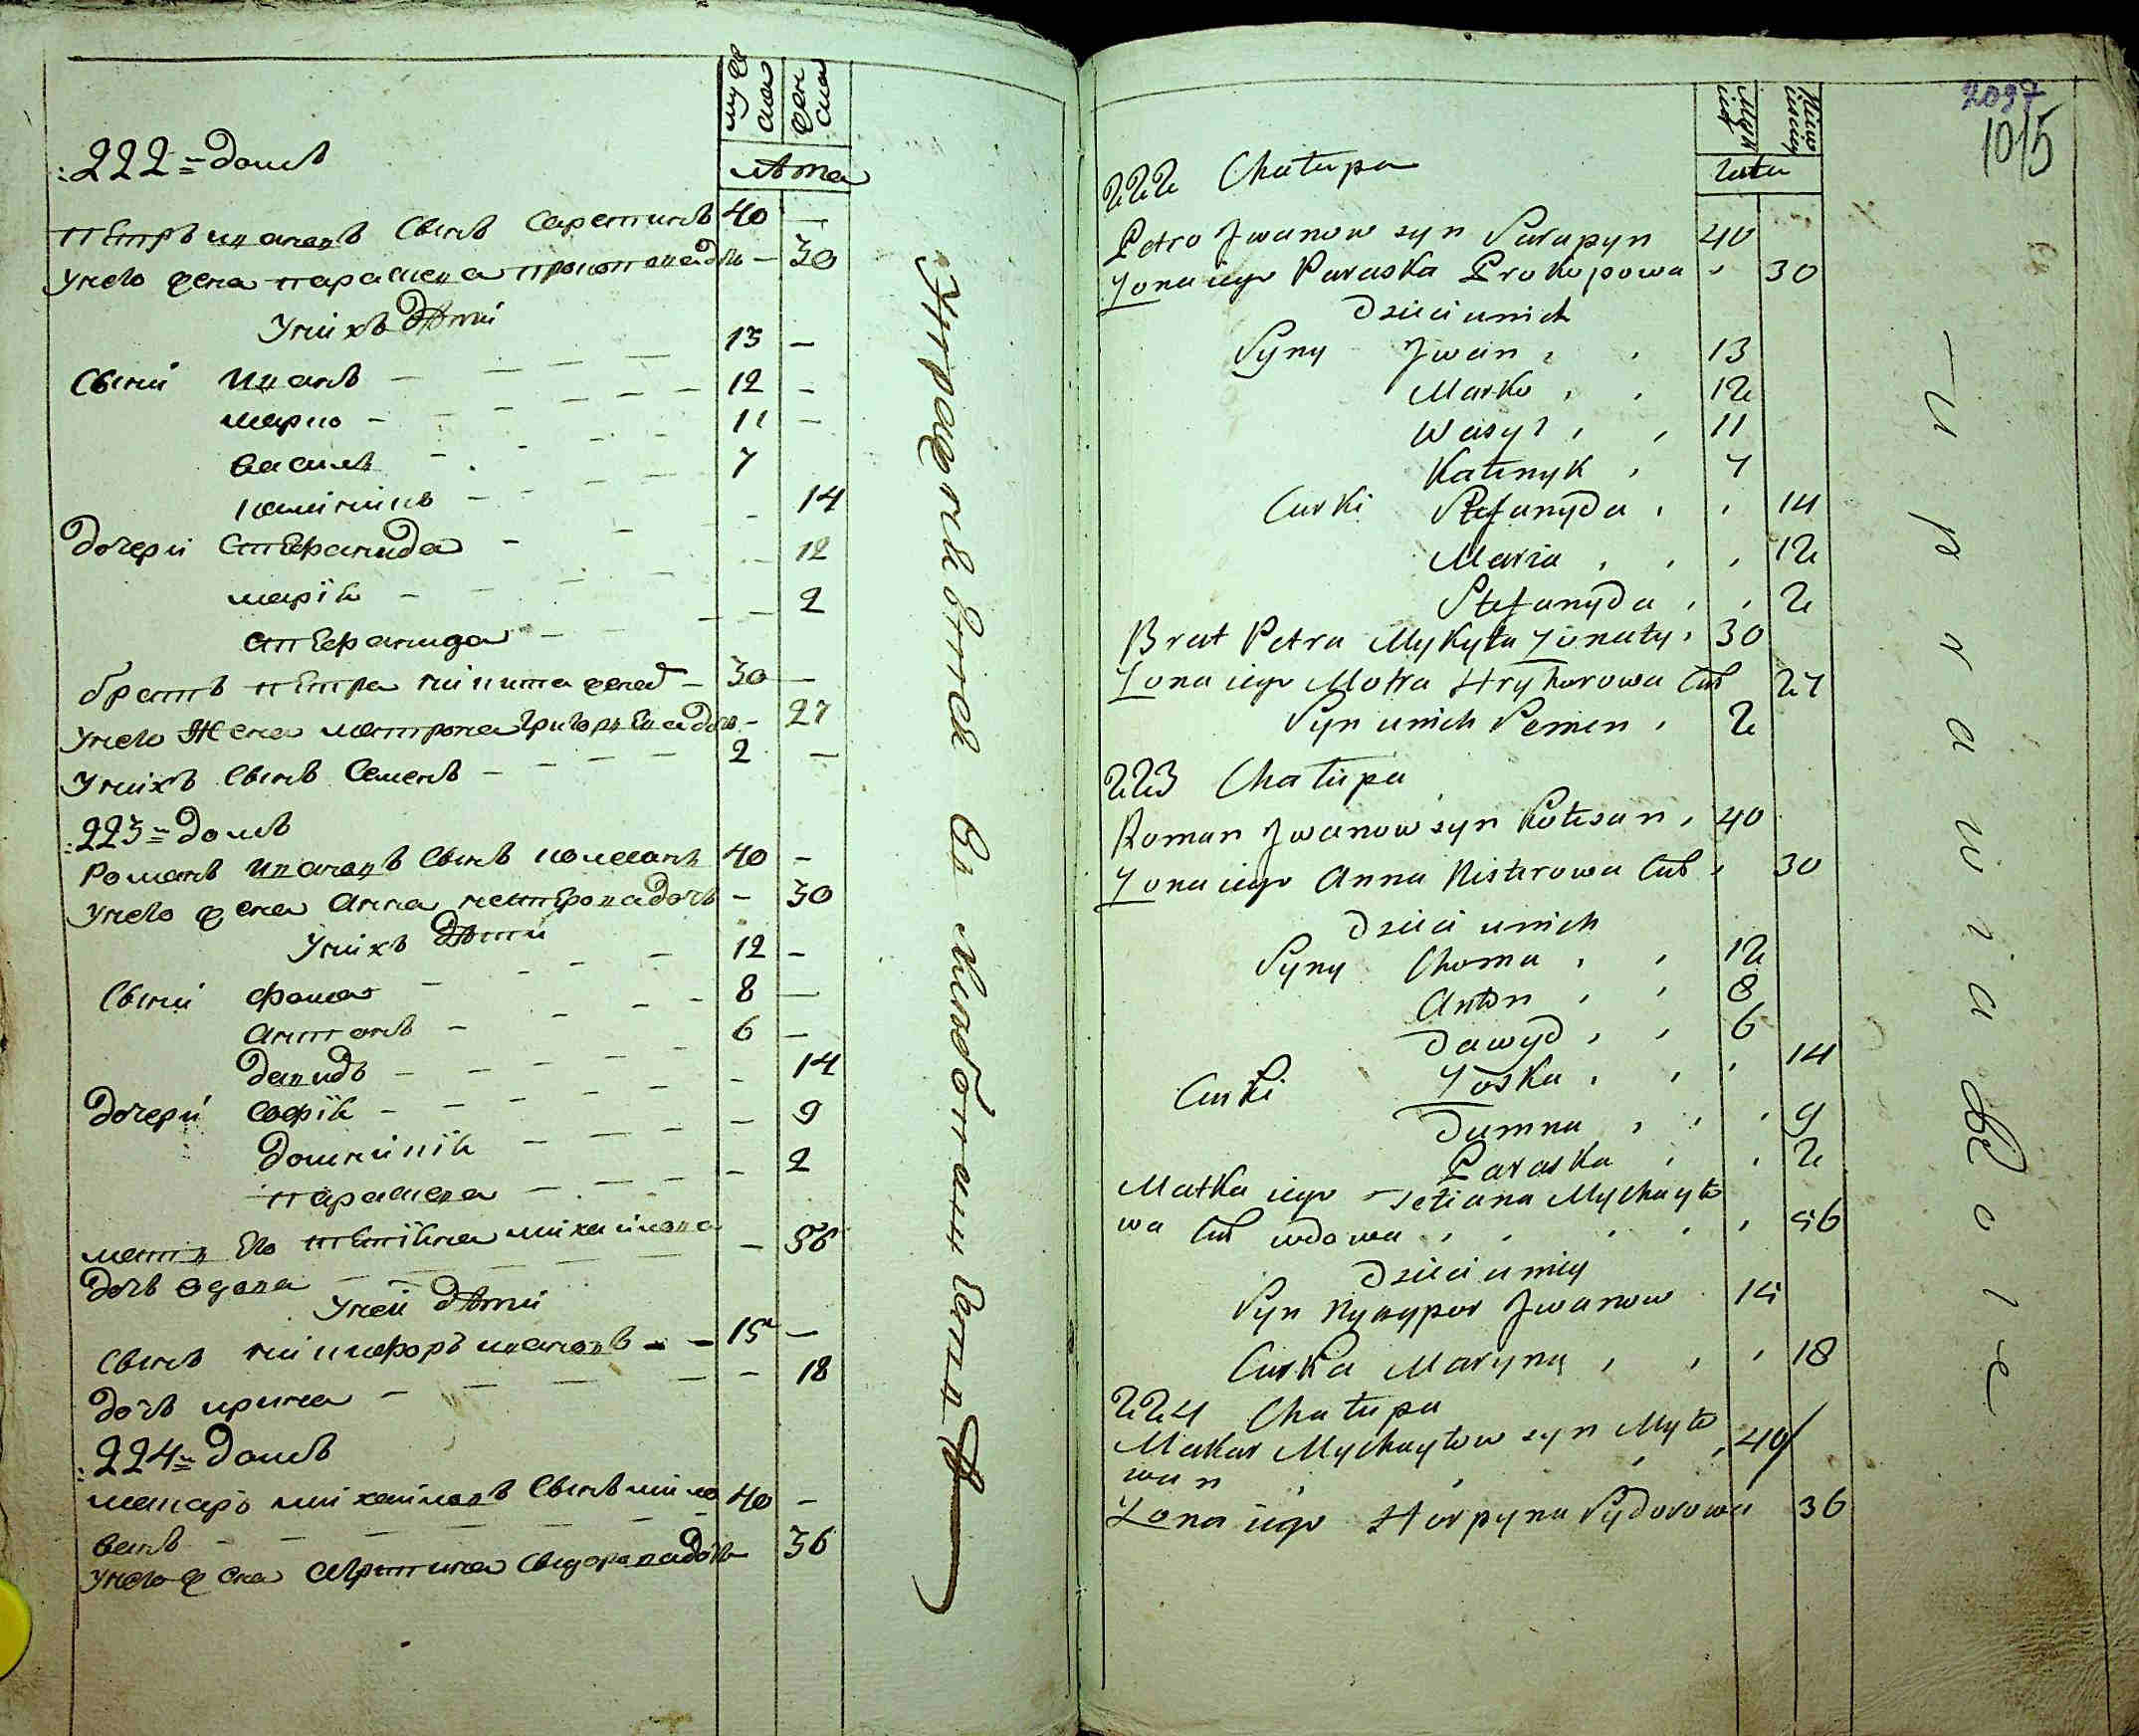 муже
ска
жен
ска
лѣта
:222= домъ
петръ ивановъ сынъ сарапинъ 40 —
унего жена параскева прокоповадочь — 30
унихъ дѣти
сыни иванъ — — — — 13 —
марко — — — — — — 12 —
василь — — — — 11 —
калiникъ — — — — 7
дочери стефанида — — — 14
марiя — — — — 12
стефанида — — — — 2
братъ петра никита женат — 30 —
унего жена матрона григорьевадоч — 27
унихъ сынъ семенъ — — — — 2 —
:223= домъ
романъ ивановъ сынъ колесанъ 40 —
унего жена анна нестеровадочь — 30
унихъ дѣти
сыни фома — — — — 12 —
антонъ — — — — 8 —
давидъ — — — — 6 —
дочери софiя — — — — — 14
домникiя — — — — 9
параскева — — — — 2
мать его тетiяна михайлова
дочь вдова — — — — 56
уней дѣти
сынъ никифоръ ивановъ — — 15 —
дочь ирина — — — — — 18
:224= домъ
макаръ михайловъ сынъ мило
ванъ — — — — — 40 —
унего жена агрипина сидоровадочь 36
Учрежденнѣйшая
2097
1015
Męzk
iey
Niew
iesciey
Lata
222 Chałupa
Petro Jwanow syn Sarapyn 40
Zona iego Paraska Prokopowa , 30
Dzieci unich
Syny Jwan , , 13
Marko , , 12
Wasyl , , 11
Kalenyk , 7
Curki Stefanyda , , 14
Maria , , , 12
Stefanyda , , 2
Brat Petra Mykyta Zonaty , 30
Zona iego Motra Hryhorowa Cur 27
Syn unich Semen , 2
223 Chałupa
Roman Jwanow syn Kolesan , 40
Zona iego Anna Nisterowa Cur , 30
Dzieci unich
Syny Choma , , 12
Anton , , 8
Dawyd , , 6
Curki Zoska , , , 14
Dumna , , , 9
Paraska , , 2
Matka iego Tetiana Mychayło
wa Cur wdowa , , , , 56
Dzieci uniey
Syn Nykypor Jwanow 15
Curka Maryna , , , 18
224 Chałupa
Makar Mychayłow syn Myło
wan , , , , 40
Zona iego Horpyna Sydorowa 36